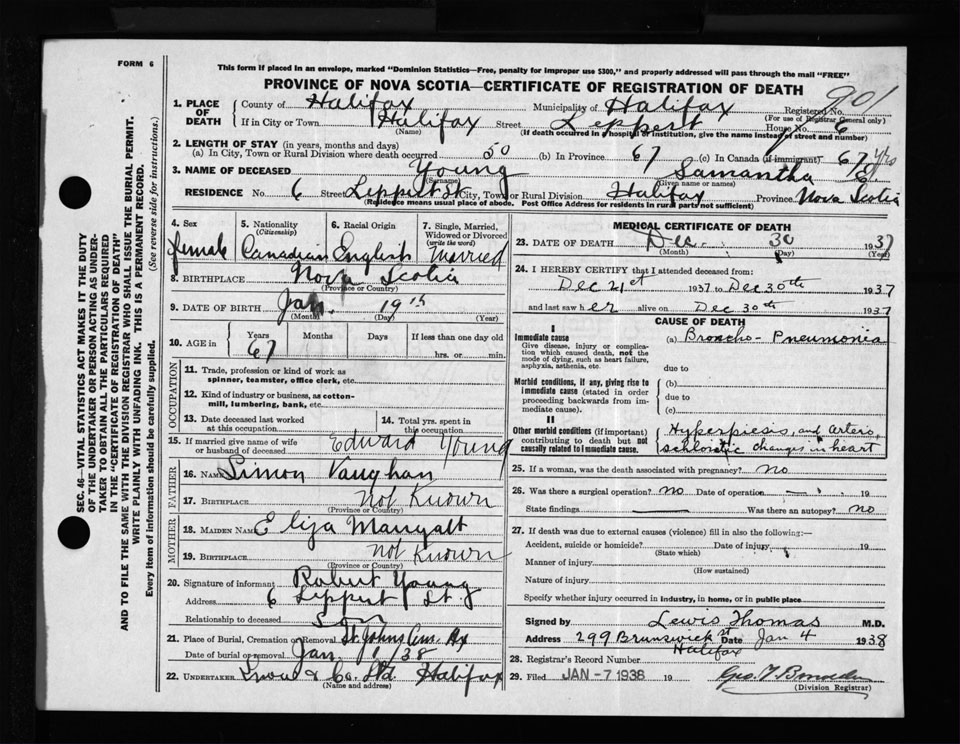 FORM 6
This form if placed in an envelope, marked "Dominion Statistics—Free, penalty for improper use $300," and properly addressed will pass through the mail "FREE"
PROVINCE OF NOVA SCOTIA—CERTIFICATE OF REGISTRATION OF DEATH
901
1. PLACE OF DEATH County of Halifax Municipality of Halifax Registered No.
(For use of Registrar General only)
If in City or Town Halifax Street Leppert House No. 6
(Name) (If death occurred in a hospital or institution, give the name instead of street and number)
2. LENGTH OF STAY (in years, months and days)
(a) In City, Town or Rural Division where death occurred 50 (b) In Province 67 (c) In Canada (if immigrant) 67 yrs
3. NAME OF DECEASED Young Samantha E
(Surname) (Given name or names)
RESIDENCE No. 6 Street Leppert St City, Town or Rural Division Halifax Province Nova Scotia
(Residence means usual place of abode. Post Office Address for residents in rural parts not sufficient)
4. Sex female
5. Nationality (Citizenship) Canadian
6. Racial Origin English
7. Single, Married, Widowed or Divorced (write the word) Married
8. BIRTHPLACE Nova Scotia
(Province or Country)
9. DATE OF BIRTH Jan. 19th
(Month) (Day) (Year)
10. AGE in Years Months Days If less than one day old
67 hrs. or min.
OCCUPATION
11. Trade, profession or kind of work as spinner, teamster, office clerk, etc.
12. Kind of industry or business, as cotton-mill, lumbering, bank, etc.
13. Date deceased last worked at this occupation
14. Total yrs. spent in this occupation
15. If married give name of wife or husband of deceased Edward Young
FATHER
16. NAME Simon Vaughan
17. BIRTHPLACE not Known
(Province or Country)
MOTHER
18. MAIDEN NAME Eliza
19. BIRTHPLACE not Known
(Province or Country)
20. Signature of informant Robert Young
Address 6 Leppert St.
Relationship to deceased Son
21. Place of Burial, Cremation or Removal St Johns Cem. Hx
Date of burial or removal Jan 1/38
22. UNDERTAKER Snow & Co. Ltd Halifax
(Name and address)
MEDICAL CERTIFICATE OF DEATH
23. DATE OF DEATH Dec. 30 1937
(Month) (Day) (Year)
24. I HEREBY CERTIFY that I attended deceased from:
Dec 21st 1937 to Dec 30th 1937
and last saw her alive on Dec 30th 1937
CAUSE OF DEATH
I
Immediate cause (a) Broncho-Pneumonia
Give disease, injury or complication which caused death, not the mode of dying, such as heart failure, asphyxia, asthenia, etc.
due to
Morbid conditions, if any, giving rise to immediate cause (stated in order proceeding backwards from immediate cause).
(b)
due to
(c)
II
Other morbid conditions (if important) contributing to death but not causally related to immediate cause.
Hyperpiesis, and Arterio,
schlorotic changes in heart
25. If a woman, was the death associated with pregnancy? no
26. Was there a surgical operation? no Date of operation — 19
State findings — Was there an autopsy? no
27. If death was due to external causes (violence) fill in also the following:—
Accident, suicide or homicide? Date of injury 19
(State which)
Manner of injury
(How sustained)
Nature of injury
Specify whether injury occurred in industry, in home, or in public place
Signed by Lewis Thomas M.D.
Address 299 Brunswick St Date Jan 4 1938
Halifax
28. Registrar's Record Number
29. Filed JAN -7 1938 19
(Division Registrar)
SEC. 46—VITAL STATISTICS ACT MAKES IT THE DUTY
OF THE UNDERTAKER OR PERSON ACTING AS UNDER-
TAKER TO OBTAIN ALL THE PARTICULARS REQUIRED
IN THE "CERTIFICATE OF REGISTRATION OF DEATH"
AND TO FILE THE SAME WITH THE DIVISION REGISTRAR WHO SHALL ISSUE THE BURIAL PERMIT.
WRITE PLAINLY WITH UNFADING INK. THIS IS A PERMANENT RECORD.
Every item of information should be carefully supplied. (See reverse side for instructions.)